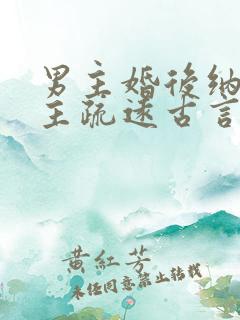 男主婚后纳
主疏远古言
黄红芳
未经同意禁止转载